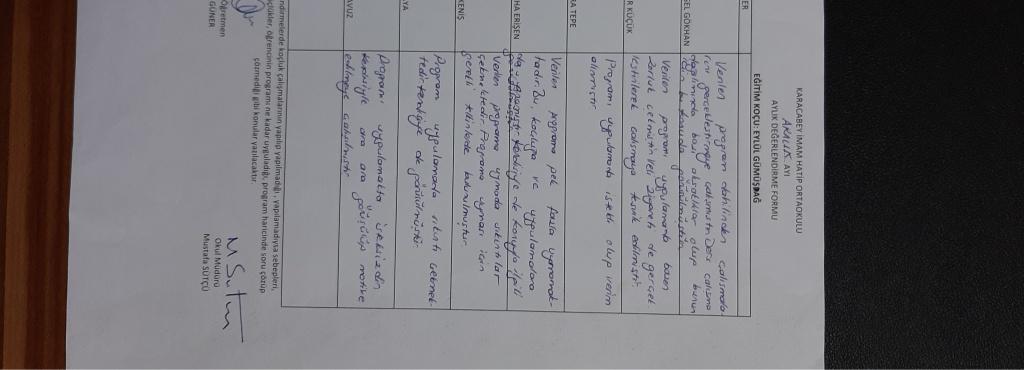 KARACABEY İMAM HATİP ORTAOKULU
ARALIK AYI
AYLIK DEĞERLENDİRME FORMU
EĞİTİM KOÇU: EYLÜL GÜMÜŞDAĞ
ER
Verilen program dahilinden çalışmala-
rını gerçekleştirmeye çalışmıştır. Ders çalışma
bazı aksaklıklar olup bunun
için bu konuda görüşülmüştür.
SEL GÖKHAN
Verilen programı uygulamakta bazen
zorluk çekmiştir. Veli ziyareti de gerçek-
leştirilerek çalışmaya teşvik edilmiştir.
R KÜÇÜK
Programı uygulamada istekli olup verim
alınmıştır.
RA TEPE
Verilen programa pek fazla uymamak-
tadır. Bu koçluğa ve uygulamalara
kendisiyle de konuyla ilgili
HA ERİŞEN
Verilen programa uymada sıkıntılar
çekmektedir. Programa uyması için
gerekli telkinlerde bulunulmuştur.
KENİŞ
Program uygulamada sıkıntı çekmek-
tedir. kendisiyle de görüşülmüştür.
AYA
Programı uygulamakta isteksizdir.
Kendisiyle ara ara görüşülüp motive
edilmeye çalışılmıştır.
AVUZ
ndirmelerde koçluk çalışmalarının yapılıp yapılmadığı, yapılamadıysa sebepleri,
çlükler, öğrencinin programı ne kadar uyguladığı, program haricinde soru çözüp
çözmediği gibi konular yazılacaktır.
Öğretmen
GÜNER
M Sütçü
Okul Müdürü
Mustafa SÜTÇÜ